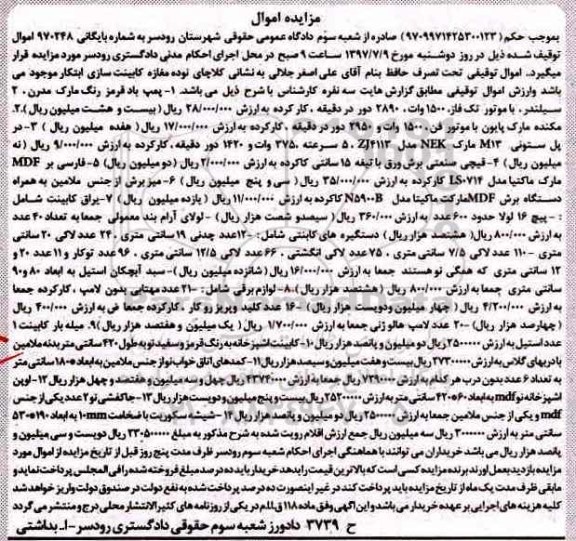 مزایده اموال
بموجب حکم (۹۷۰۹۹۷۱۴۲۵۳۰۰۱۲۳) صادره از شعبه سوم دادگاه عمومی حقوقی شهرستان رودسر به شماره بایگانی ۹۷۰۲۴۸ اموال
توقیف شده ذیل در روز دوشنبه مورخ ۱۳۹۷/۷/۹ ساعت ۹ صبح در محل اجرای احکام مدنی دادگستری رودسر مورد مزایده قرار
میگیرد. اموال توقیفی تحت تصرف حافظ بنام آقای علی اصغر جلالی به نشانی کلاچای نوده مغازه کابینت سازی ابتکار موجود می
باشد وارزش اموال توقیفی مطابق گزارش هایت سه نفره کارشناس با شرح ذیل می باشد. ۱- پمپ باد قرمز رنگ مارک مدرن، ۲
سیلندر، با موتور تک فاز، ۱۵۰۰ وات، ۲۸۹۰ دور در دقیقه، کارکرده به ارزش ۲۸/۰۰۰/۰۰۰ ریال( بیست و هشت میلیون ریال). ۲-
مکنده مارک پایون با موتور فن، ۱۵۰۰ وات و ۲۹۵۰ دور در دقیقه، کارکرده به ارزش ۱۷/۰۰۰/۰۰۰ ریال( هفده میلیون ریال) ۳- در
پل ستونی M۱۳ مارک NEK مدل ZJ۴۱۱۳، ۵ سرعته، ۳۷۵ وات و ۱۴۲۰ دور دقیقه، کارکرده به ارزش ۹/۰۰۰/۰۰۰ ریال (نه
میلیون ریال) ۴- قیچی صنعتی برش ورق با تیغه ۱۵ سانتی کاکرده به ارزش ۲/۰۰۰/۰۰۰ ریال (دو میلیون ریال) ۵- فارسی بر MDF
مارک ماکتیا مدل LS۰۷۱۴ کارکرده به ارزش ۳۵/۰۰۰/۰۰۰ ریال( سی و پنج میلیون ریال) ۶- میز برش از جنس ملامین به همراه
دستگاه برش MDF مارکت ماکیتا مدل N۵۹۰۰B کارکرده به ارزش ۱۱/۰۰۰/۰۰۰ ریال ( یازده میلیون ریال) ۷- یراق کابینت شامل
: - پیچ ۱۶ لولا حدود ۶۰۰ عدد به ارزش ۳۶۰/۰۰۰ ریال (سیصدو شصت هزار ریال) - لولای آرام بند معمولی جمعا به تعداد ۴۰ عدد
به ارزش ۸۰۰/۰۰۰ ریال( هشتصد هزار ریال) دستگیره های کابنتی شامل: - ۱۲ عدد چدنی ۱۹ سانتی متری، ۲۴ عدد لاکی ۲۰ سانتی
متری - ۱۱۰ عدد لاکی ۷/۵ سانتی متری، ۷۵ عدد لاکی انگشتی، ۶۶ عدد لاکی ۱۲/۵ سانتی متری، ۹۶ عدد توکار و ۱۱ عدد ۲۰ و
۱۳ سانتی متری که همگی نو هستند جمعا به ارزش ۱۶/۰۰۰/۰۰۰ ریال (شانزده میلیون ریال)- سبد آبچکان استیل به ابعاد ۸۰ و ۹۰
سانتی متری جمعا به ارزش ۸۰۰/۰۰۰ ریال (هشتصد هزار ریال). ۸- لوازم برقی شامل: - ۲۱ عدد مهتابی بدون لامپ، کارکرده جمعا
به ارزش ۴/۲۰۰/۰۰۰ ریال ( چهار میلیون ودویست هزار ریال) - ۱۶ عدد کلید وپریز روکار، کارکرده جمعا ض به ارزش ۴۰۰/۰۰۰ ریال
(چهارصد هزار ریال) - ۲۰ عدد لامپ هالوژنی جمعا به ارزش ۱/۷۰۰/۰۰۰ ریال ( یک میلیون و هفتصد هزار ریال) ۹. میله بار کابینت ۱
عدد استیل به ارزش ۲۵۰۰۰۰۰ ریال دو میلیون و پانصد هزار ریال ۱۰- کابینت اشپزخانه به رنگ قرمز و سفید نو به طول ۴۲۰ سانتی متر بدنه ملامین
با درهای گلاس به ارزش ۲۷۳۰۰۰۰۰ ریال بیست و هفت میلیون و سیصد هزار ریال ۱۱- کمدهای اتاق خواب نو از جنس ملامین به ابعاد ۱۸۰۰ سانتی متر
به تعداد ۶ عدد بدون درب هر کدام به ارزش ۷۲۹۰۰۰۰ ریال جمعا به ارزش ۴۳۷۴۰۰۰۰ ریال چهل و سه میلیون و هفتصد و چهل هزار ریال ۱۲- اوپن
اشپزخانه نو mdf به ابعاد ۴۲۰*۶۰ سانتی متر به ارزش ۲۵۲۰۰۰۰۰ ریال بیست و پنج میلیون و دویست هزار ریال ۱۳- جاکفشی نو ۲ عدد یکی از جنس
mdf و یکی از جنس ملامین جمعا به ارزش ۲۵۰۰۰۰۰ ریال دو میلیون و پانصد هزار ریال ۱۴- شیشه سکوریت با ضخامت ۱۰mm به ابعاد ۱۹۰*۵۳
سانتی متر به ارزش ۳۰۰۰۰۰۰ ریال سه میلیون ریال جمع ارزش اقلام رویت شده به شرح مذکور به مبلغ ۲۳۰۵۰۰۰۰۰ ریال دویست و سی میلیون و
پانصد هزار ریال می باشد خریداران می توانند با هماهنگی اجرای احکام شعبه سوم رودسر ظرف مدت پنج روز قبل از تاریخ مزایده از اموال مورد
مزایده بازدید بعمل اورند برنده مزایده کسی است که بالاترین قیمت را بدهد خریدار باید ده درصد مبلغ فروخته شده را فی المجلس پرداخت نماید و
مابقی ظرف مدت یک ماه از تاریخ مزایده باید پرداخت کند در غیر اینصورت ده درصد پرداخت شده به نفع دولت در صندوق دولت واریز خواهد شد
کلیه هزینه های اجرایی بر عهده خریدار می باشد و این اگهی وفق ماده ۱۱۸ ق.ا.م در یکی از روزنامه های کثیر الانتشار محلی درج و منتشر می گردد
ح ۳۷۳۹ دادورز شعبه سوم حقوقی دادگستری رودسر - ا. بداشتی